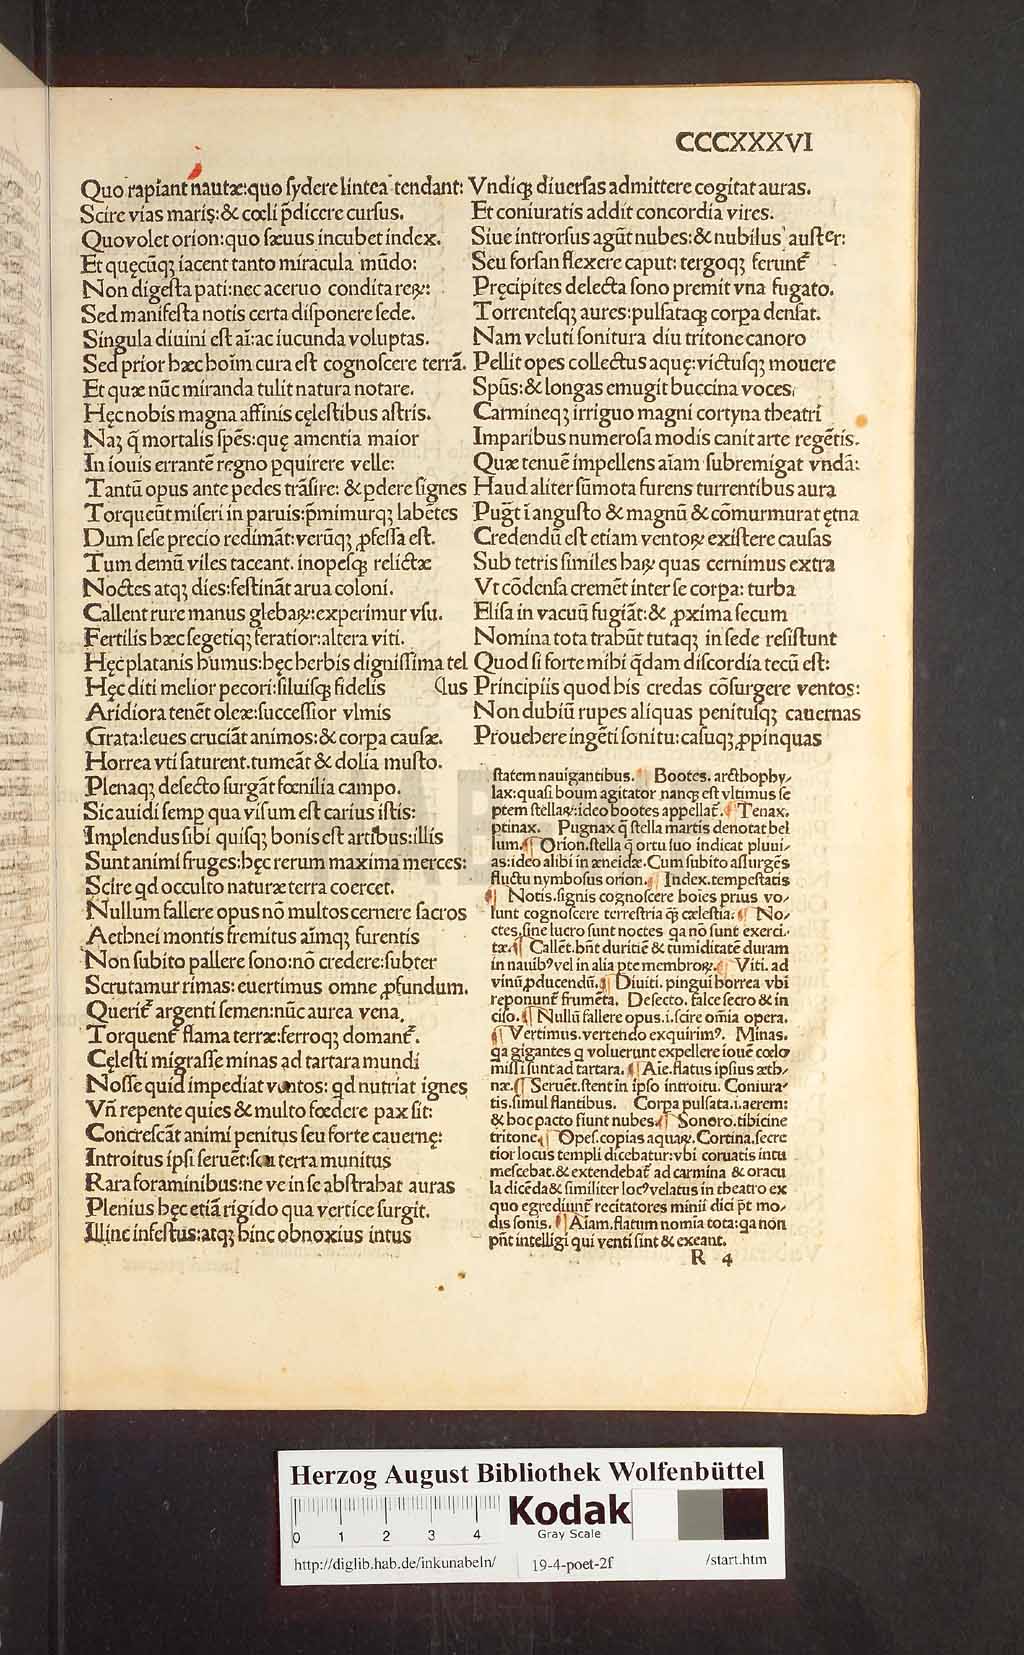 CCCXXXVI
Quo rapiant nautæ:quo sydere lintea tendant:
Scire vias maris:& cœli p̄dicere cursus.
Quo volet orion:quo sæuus incubet index.
Et quęcūqꝫ iacent tanto miracula mūdo:
Non digesta pati:nec aceruo condita reꝝ:
Sed manifesta notis certa disponere sede.
Singula diuini est aī:ac iucunda voluptas.
Sed prior hæc hoīm cura est cognoscere terrā.
Et quæ nūc miranda tulit natura notare.
Hęc nobis magna affinis cęlestibus astris.
Naꝫ q̄ mortalis spēs:quę amentia maior
In iouis errantē regno ꝑquirere velle:
Tantū opus ante pedes trāsire: & ꝑdere signes
Torquēt miseri in paruis:p̄mimurqꝫ labētes
Dum sese precio redimāt:verūqꝫ ꝓfessa est.
Tum demū viles taceant. inopesqꝫ relictæ
Noctes atqꝫ dies:festināt arua coloni.
Callent rure manus glebaꝝ:experimur vsu.
Fertilis hæc segetiqꝫ feratior:altera viti.
Hęc platanis humus:hęc herbis dignissima tel
Hęc diti melior pecori:siluisqꝫ fidelis (lus
Aridiora tenēt oleæ:successior vlmis
Grata:leues cruciāt animos:& corpa causæ.
Horrea vti saturent.tumeāt & dolia musto.
Plenaqꝫ desecto surgāt fœnilia campo.
Sic auidi semp qua visum est carius istis:
Implendus sibi quisqꝫ bonis est artibus:illis
Sunt animi fruges:hęc rerum maxima merces:
Scire qd occulto naturæ terra coercet.
Nullum fallere opus nō multos cernere sacros
Aethnei montis fremitus aīmqꝫ furentis
Non subito pallere sono:nō credere:subter
Scrutamur rimas: euertimus omne ꝓfundum.
Querit᷑ argenti semen:nūc aurea vena.
Torquent᷑ flama terræ:ferroqꝫ domant᷑.
Cęlesti migrasse minas ad tartara mundi
Nosse quid impediat ventos: qd nutriat ignes
Vn̄ repente quies & multo fœdere pax sit:
Concrescāt animi penitus seu forte cauernę:
Introitus ipsi seruēt:seu terra munitus
Rara foraminibus:ne ve in se abstrahat auras
Plenius hęc etiā rigido qua vertice surgit.
Illinc infestus:atqꝫ hinc obnoxius intus
Vndiqꝫ diuersas admittere cogitat auras.
Et coniuratis addit concordia vires.
Siue introrsus agūt nubes:& nubilus auster:
Seu forsan flexere caput: tergoqꝫ ferunt᷑
Pręcipites delecta sono premit vna fugato.
Torrentesqꝫ aures:pulsataqꝫ corpa densat.
Nam veluti sonitura diu tritone canoro
Pellit opes collectus aquę:victusqꝫ mouere
Spūs:& longas emugit buccina voces,
Carmineqꝫ irriguo magni cortyna theatri
Imparibus numerosa modis canit arte regētis.
Quæ tenuē impellens aīam subremigat vndā:
Haud aliter sūmota furens turrentibus aura
Pugt̄ ī angusto & magnū & cōmurmurat ętna
Credendū est etiam ventoꝝ existere causas
Sub tetris similes haꝝ quas cernimus extra
Vt cōdensa cremēt inter se corpa: turba
Elisa in vacuū fugiāt:& ꝓxima secum
Nomina tota trahūt tutaqꝫ in sede resistunt
Quod si forte mihi q̄dam discordia tecū est:
Principiis quod his credas cōsurgere ventos:
Non dubiū rupes aliquas penitusqꝫ cauernas
Prouehere ingēti sonitu:casuqꝫ ꝓpinquas
statem nauigantibus. Bootes. arcthophy-
lax:quasi boum agitator nanqꝫ est vltimus se
ptem stellaꝝ:ideo bootes appellat᷑. Tenax.
ptinax. Pugnax q̄ stella martis denotat bel
lum. Orion.stella q̄ ortu suo indicat pluui-
as:ideo alibi in æneidæ.Cum subito assurgēs
fluctu nymbosus orion. Index.tempestatis
Notis.signis cognoscere hoies prius vo-
lunt cognoscere terrestria qꝫ cælestia. No-
ctes.sine lucro sunt noctes qa nō sunt exerci-
tæ. Callēt.hn̄t duritiē & tumiditatē duram
in nauibꝰ vel in alia pte membroꝝ. Viti. ad
vinū ꝓducendū. Diuiti. pingui horrea vbi
reponunt᷑ frumēta. Desecto. falce secro & in
ciso. Nullū fallere opus.i.scire oīa opera.
Vertimus.vertendo exquirimꝰ. Minas.
qa gigantes q voluerunt expellere iouē cœlo
missi sunt ad tartara. Aie.flatus ipsius æth-
næ. Seruēt.stent in ipso introitu. Coniura-
tis.simul flantibus. Corpa pulsata.i.aerem:
& hoc pacto fiunt nubes. Sonoro.tibicine
tritone. Opes.copias aquaꝝ.Cortina.secre
tior locus templi dicebatur:vbi coruatis intu
mescebat.& extendebat᷑ ad carmina & oracu
la dicēda & similiter locꝰ velatus in theatro ex
quo egrediunt᷑ recitatores minii dici pt̄ mo-
dis sonis. Aīam.flatum nomīa tota:qa non
pn̄t intelligi qui venti sint & exeant.
R 4
Herzog August Bibliothek Wolfenbüttel
0 1 2 3 4
Kodak
Gray Scale
http://diglib.hab.de/inkunabeln/ 19-4-poet-2f /start.htm